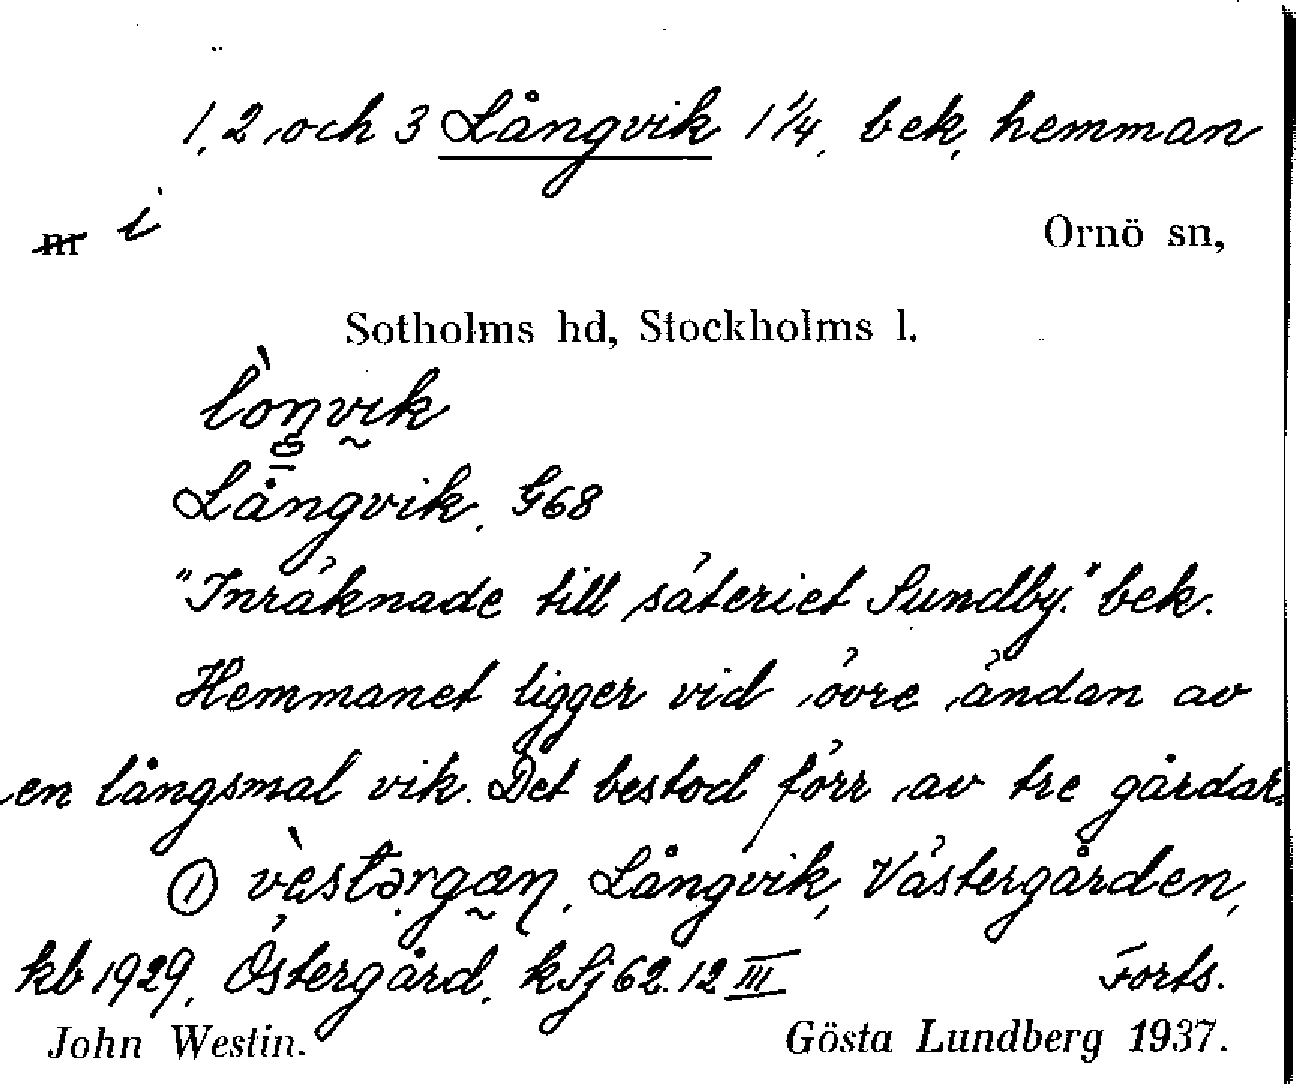 1, 2, och 3 Långvik 1 1/4, bek, hemman
nr i Ornö sn,
Sotholms hd, Stockholms l.
lòŋvik
Långvik. G68
"Inräknade till säteriet Sundby." bek.
Hemmanet ligger vid övre ändan av
en långsmal vik. Det bestod förr av tre gårdar.
① vèstərgaŋ, Långvik, Västergården,
kb 1929, Östergård, k Sj 62.12 III Forts.
John Westin. Gösta Lundberg 1937.